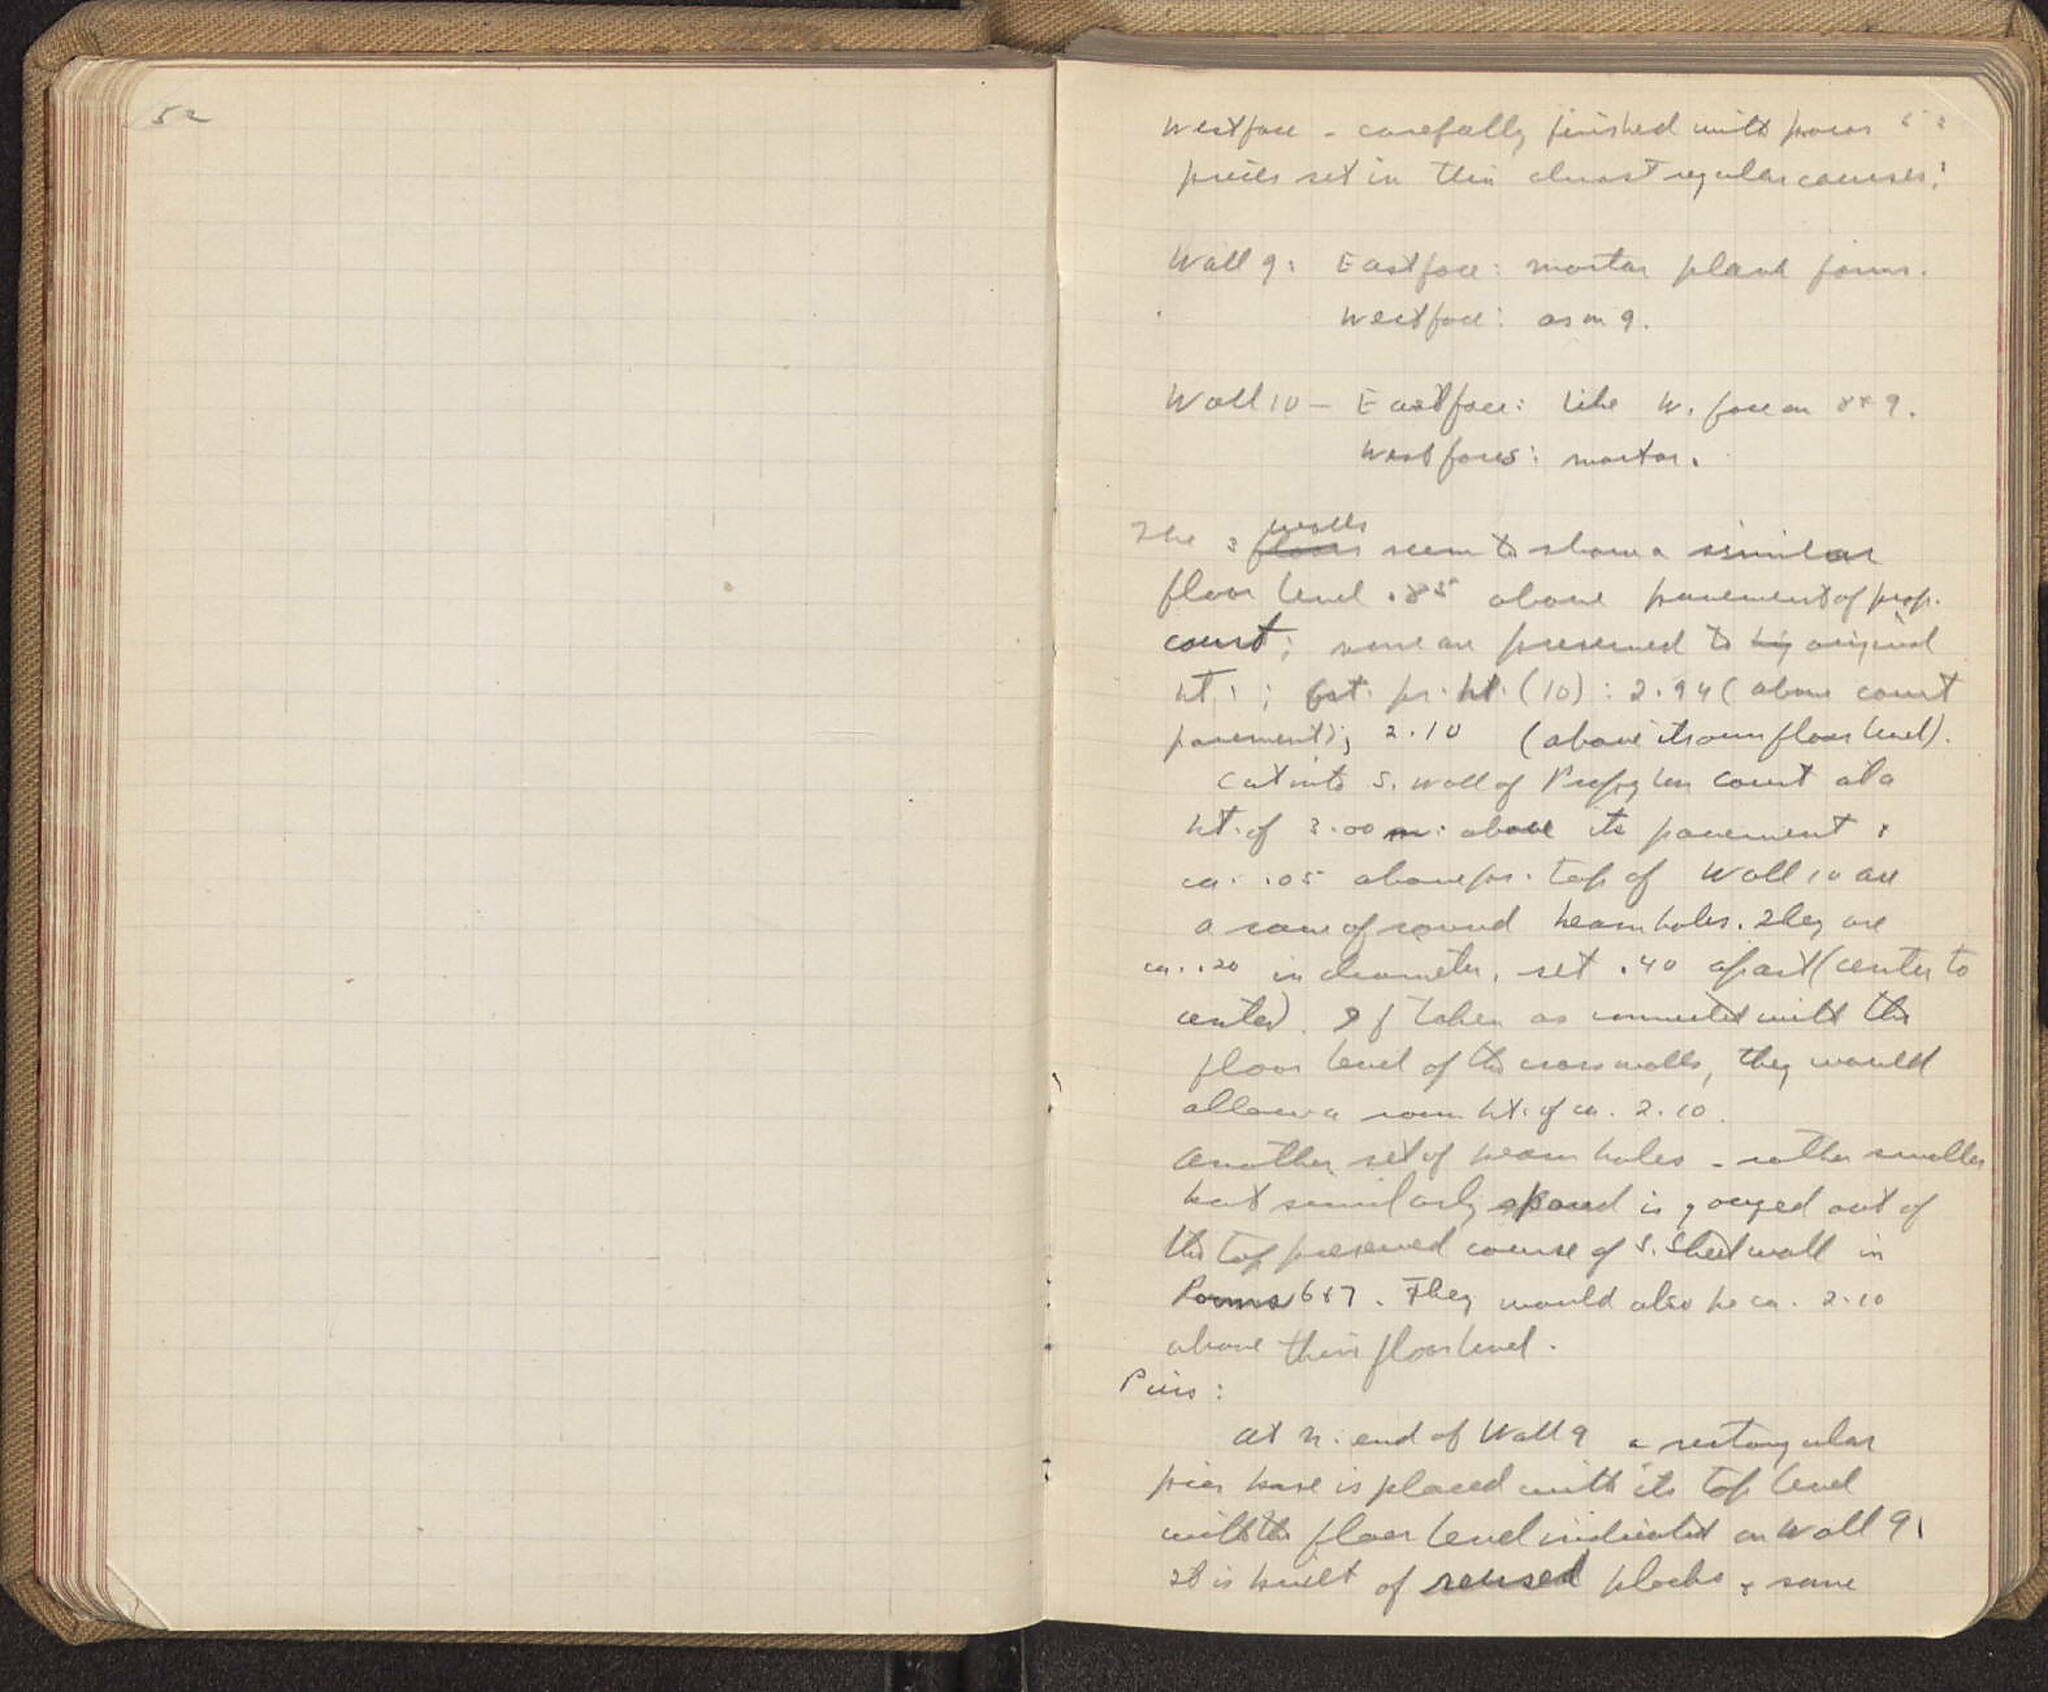 52
West face - carefully finished with poros 53
pieces set in thin almost regular courses.
Wall 9: East face: mortar plank forms.
West face: as on 9.
Wall 10 - East face: like W. face on 8 + 9.
West faces: mortar.
walls
The 3 floors seem to show a similar
floor level .85 above pavement of prop.
court; none are preserved to hig original
ht.; Gst. pr. ht. (10): 2.94 (above court
pavement); 2.10 (above its own floor level).
Cut into S. wall of Propylon court at a
ht. of 3.00 m. above its pavement +
ca. .05 above pr. top of Wall 10 are
a row of round beam holes. They are
ca. .20 in diameter, set .40 apart (center to
center). If taken as connected with the
floor level of the cross walls, they would
allow a room ht. of ca. 2.10.
Another set of beam holes - rather smaller
but similarly spaced is gouged out of
the top preserved course of S. Shed wall in
Rooms 6 + 7. They would also be ca. 2.10
above their floor level.
Piers:
At N. end of Wall 9 a rectangular
pier base is placed with its top level
with the floor level indicated on Wall 9.
It is built of reused blocks + some